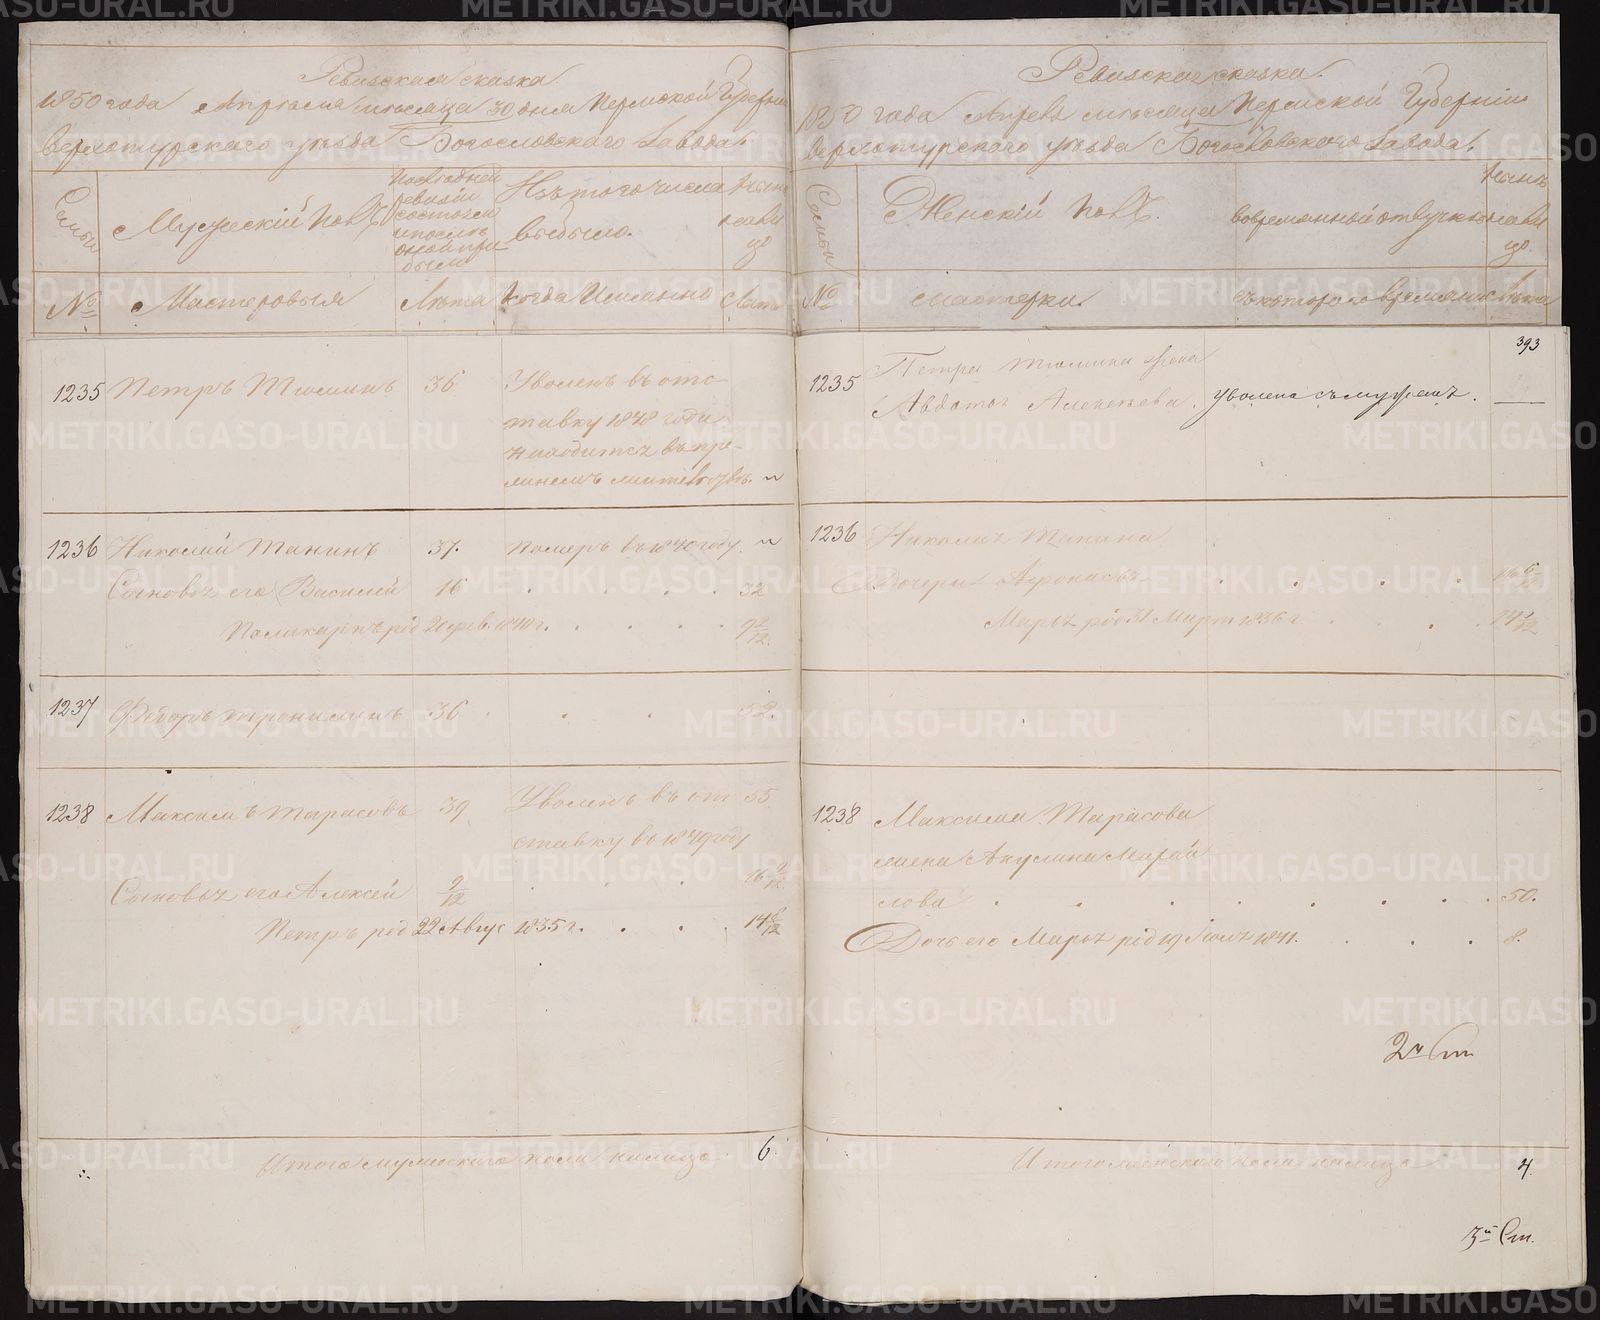 Ревизская сказка
1850 года Апреля месяца 30 дня Пермской Губернии
Верхотурского уезда Богословского завода.
Семьи
Мужеский полъ
Последней ревизiи состояло и после оной прибыло
Изъ того числа выбыло.
Ныне на лицо
№
Мастеровыя
Лета
Когда Именно
Лета
1235 Петръ Тюминъ 36 Уволенъ въ от-
ставку 1848 года
находится въ
1236 Николай Танинъ 37. Померъ въ 1840 году
Сыновья его Василий 16 32
Поликарпъ род 20 фев. 1840 г.
1237 Федоръ 36 52.
1238 Максимъ Тарасовъ 39 Уволенъ въ от 55
ставку въ 1849 году
Сыновья его Алексей 9/12 16 9/12
Петръ род 22 Авгус 1835 г. 14 8/12
Итого мужеского пола налицо 6
Ревизская сказка.
1850 года Апреля месяца Пермской Губернiи
Верхотурского уезда Богословского завода.
Семьи
Женскiй полъ.
Во временной отлучке
Ныне на лицо
№
мастерки.
съ которого времяни
Лета
393
1235 Петра Тюмина жена
Авдотья Алексеева. уволена съ мужемъ.
1236 Николая Танина
Дочери
Марья род 31 Март 1836 г.
1238 Максима Тарасова
жена Акулина
лова 50.
Дочь его Марья род 19 Июля 1841. 8.
2я Ст
Итого женского пола налицо 4
3я Ст.
METRIKI.GASO-URAL.RU